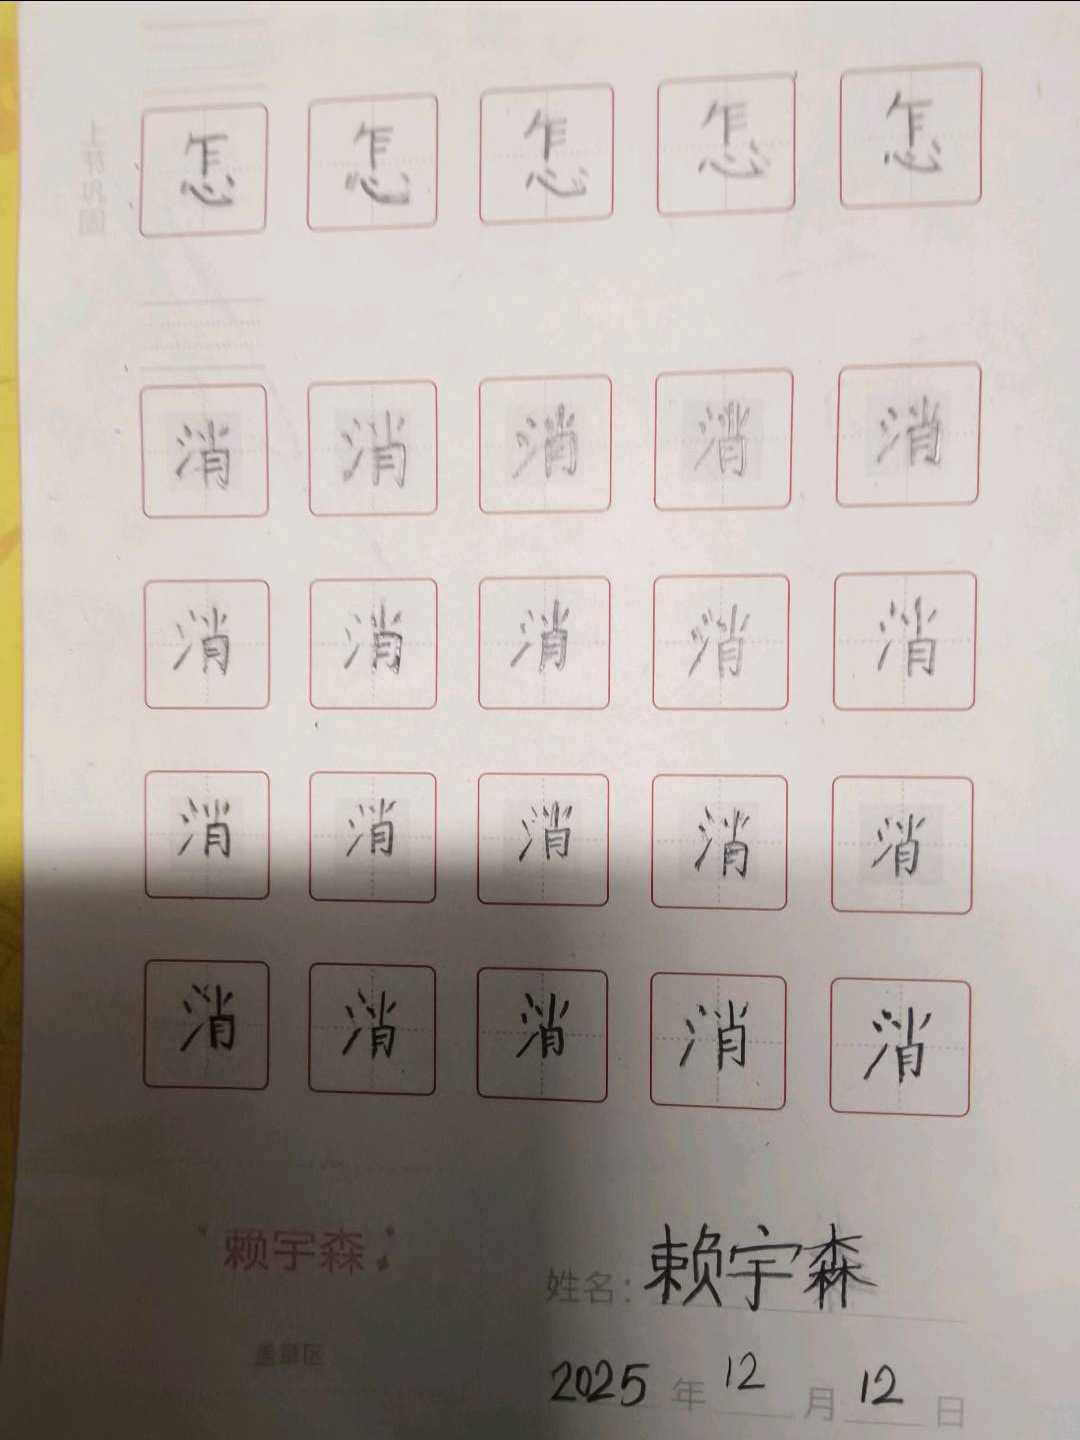 上节巩固
怎 怎 怎 怎 怎
消 消 消 消 消
消 消 消 消 消
消 消 消 消 消
消 消 消 消 消
赖宇森
姓名：赖宇森
盖章区
2025年12月12日